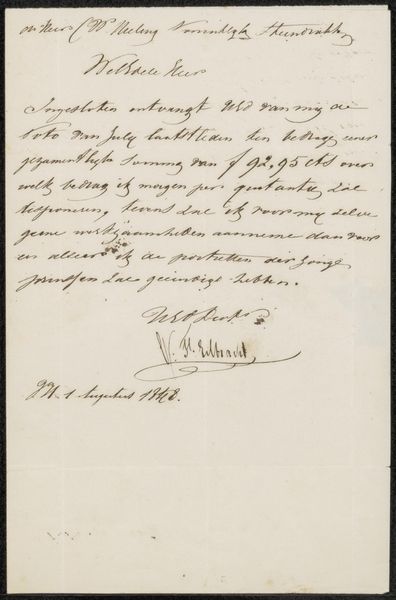 den Heer C W Mieling Koninklijke Steendrukker
WelEdele Heer
Ingesloten ontvangt UEd van mij de
nota van July laatstleden ten bedrage eener
gezamentlyke somma van f 92,95 cts over
welk bedrag ik morgen per quitantie zal
disponeren, tevens zal ik voor my selve
geene werkzaamheden aanneme dan voor
en alleer ik de portretten der jonge
prinssen zal geeindigd hebben.
UEd Dien
W. H. Eilbracht
H. 1 Augustus 1848.